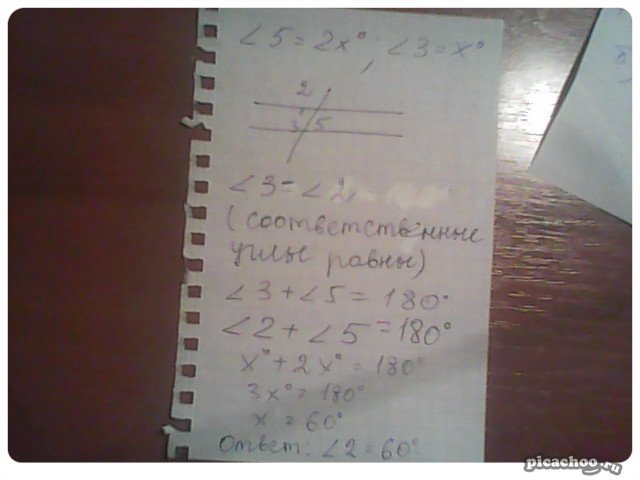 ∠5=2x°; ∠3=x°
2
3 5
∠3=∠2
(соответственные
углы равны)
∠3+∠5=180°
∠2+∠5=180°
x°+2x°=180°
3x°=180°
x=60°
Ответ: ∠2=60°
picachoo.ru